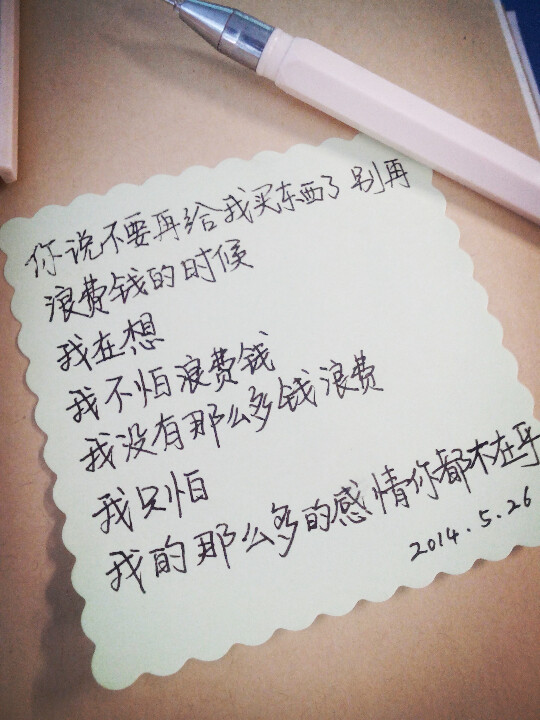 你说不要再给我买东西了别再
浪费钱的时候
我在想
我不怕浪费钱
我没有那么多钱浪费
我只怕
我的那么多的感情你都不在乎
2014.5.26